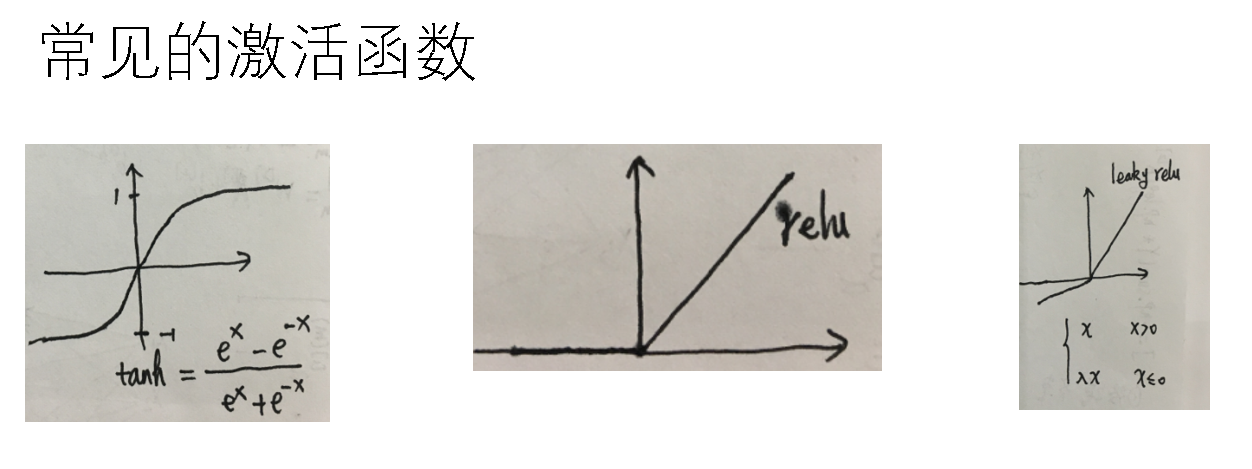 常见的激活函数
1
-1
tanh = \frac{e^x - e^{-x}}{e^x + e^{-x}}
relu
leaky relu
{ x x>0
λx x≤0